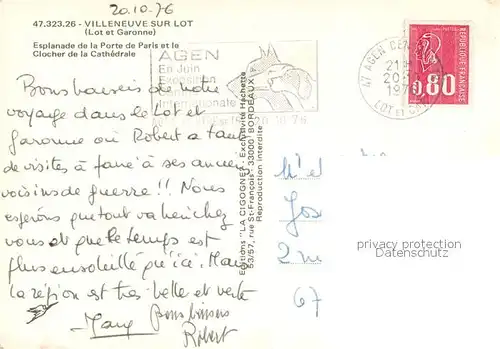 20.10.76
47.323.26 - VILLENEUVE SUR LOT
(Lot et Garonne)
Esplanade de la Porte de Paris et le
Clocher de la Cathédrale
AGEN
En Juin
Exposition
Internationale
47 AGEN
21 H
20-
197
LOT ET
REPUBLIQUE FRANCAISE
0,80
20.10.76
Bons baisers de notre
voyage dans le Lot et
Garonne où Robert a tant
de visites à faire à ses anciens
voisins de guerre !! Nous
espérons que tout va bien chez
vous et que le temps est
plus ensoleillé qu'ici. Mais
la région est très belle et verte
Bons baisers
Robert
Editions "LA CIGOGNE" - Exclusivité Hachette
53/57, rue St-François - 33000 BORDEAUX
Reproduction interdite
M et
Jos
2
67
privacy protection
Datenschutz